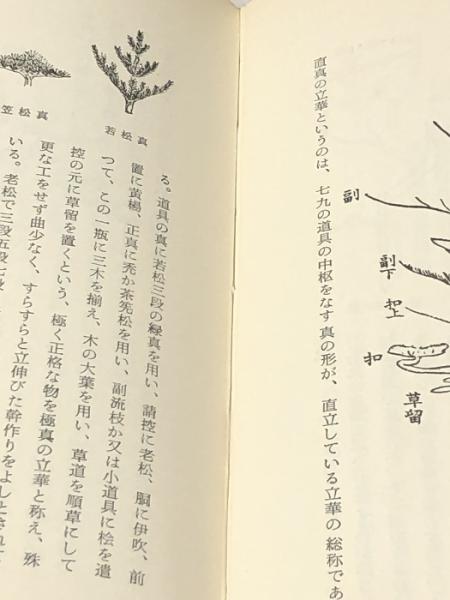 直真の立華というのは、七九の道具の中枢をなす真の形が、直立している立華の総称であ
副
副下
和上
扣
草留
若松真
笠松真
る。道具の真に若松三段の緑真を用い、請控に老松、胴に伊吹、前
置に黄楊、正真に禿か茶筅松を用い、副流枝か又は小道具に桧を遣
つて、この一瓶に三木を揃え、木の大葉を用い、草道を順草にして
控の元に草留を置くという、極く正格な物を極真の立華と称え、殊
更な工をせず曲少なく、すらすらと立伸びた幹作りをよしとされて
いる。老松で三段五段七段